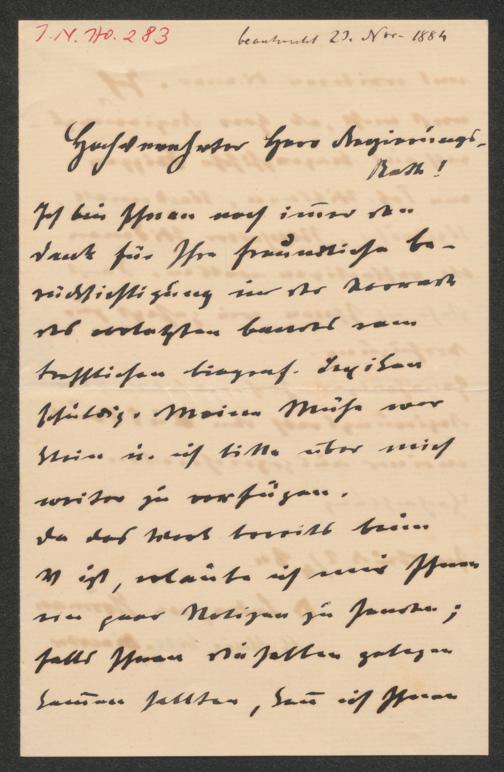 I. N. No. 283
beantwortet 29. Nov. 1884
Hochverehrter Herr Regierungs-
Rath!
Ich bin Ihnen noch im̅er den
Dank für Ihre freundliche Be-
rücksichtigung in der Vorrede
des vorletzten Bandes vom
trefflichen biograf. Lexikon
schuldig. Meine Mühe war
klein u. ich bitte über mich
weiter zu verfügen.
Da das Werk bereits beim
W ist, erlaube ich mir Ihnen
ein paar Notizen zu senden;
falls Ihnen dieselben gelegen
kom̅en sollten, kan̅ ich Ihnen